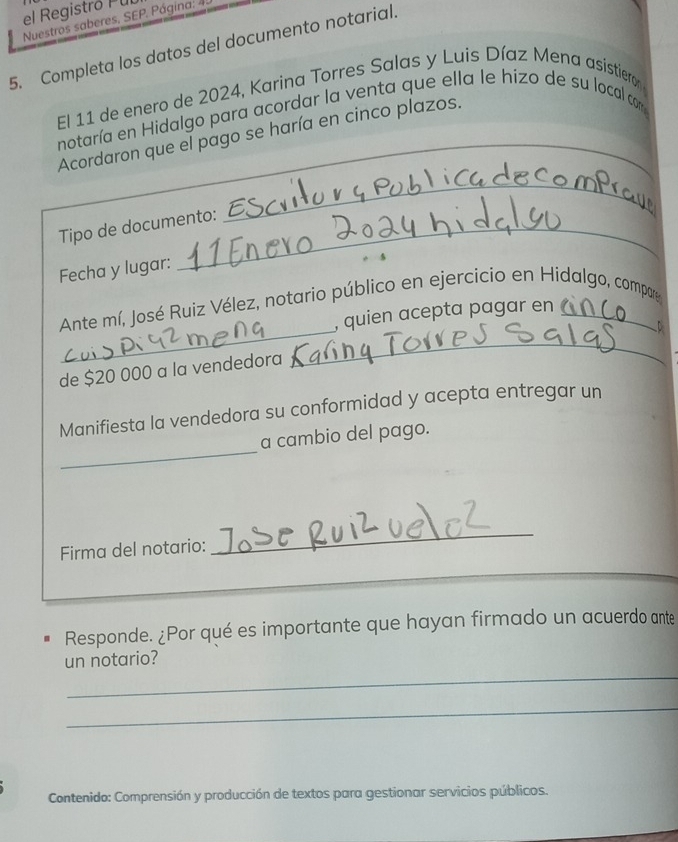 el Registro
Nuestros saberes, SEP. Página:
5. Completa los datos del documento notarial.
El 11 de enero de 2024, Karina Torres Salas y Luis Díaz Mena asistieron
notaría en Hidalgo para acordar la venta que ella le hizo de su local com
Acordaron que el pago se haría en cinco plazos.
Tipo de documento: EScritura publica de comprave
Fecha y lugar: 11 Enero 2024 hidalgo
Ante mí, José Ruiz Vélez, notario público en ejercicio en Hidalgo, compare
Luis Diaz mena, quien acepta pagar en cinco p
de $20 000 a la vendedora Karina Torres Salas
Manifiesta la vendedora su conformidad y acepta entregar un
a cambio del pago.
Firma del notario: Jose Ruiz velez
Responde. ¿Por qué es importante que hayan firmado un acuerdo ante
un notario?
Contenido: Comprensión y producción de textos para gestionar servicios públicos.